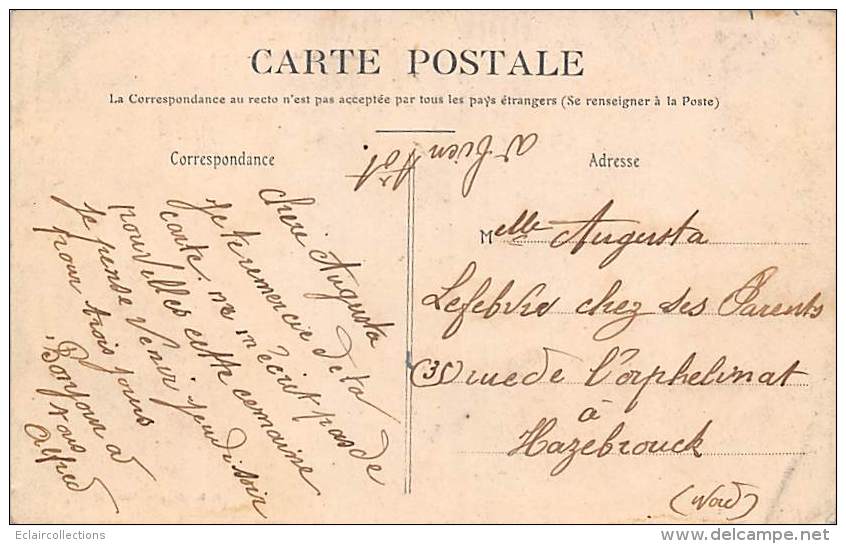 CARTE POSTALE
La Correspondance au recto n'est pas acceptée par tous les pays étrangers (Se renseigner à la Poste)
Correspondance
Adresse
chere Augusta
Je te remercie de ta
carte. ne m'écrit pas de
pour Villes cette semaine
je pense Venir jeudi soir
pour trois jours
Bonjour a
tous
Alfred
a bien
tot.
Melle Augusta
Lefebvre chez ses Parents
(35) rue de l'orphelinat
à
Hazebrouck
(Nord)
Eclaircollections
delcampe.net